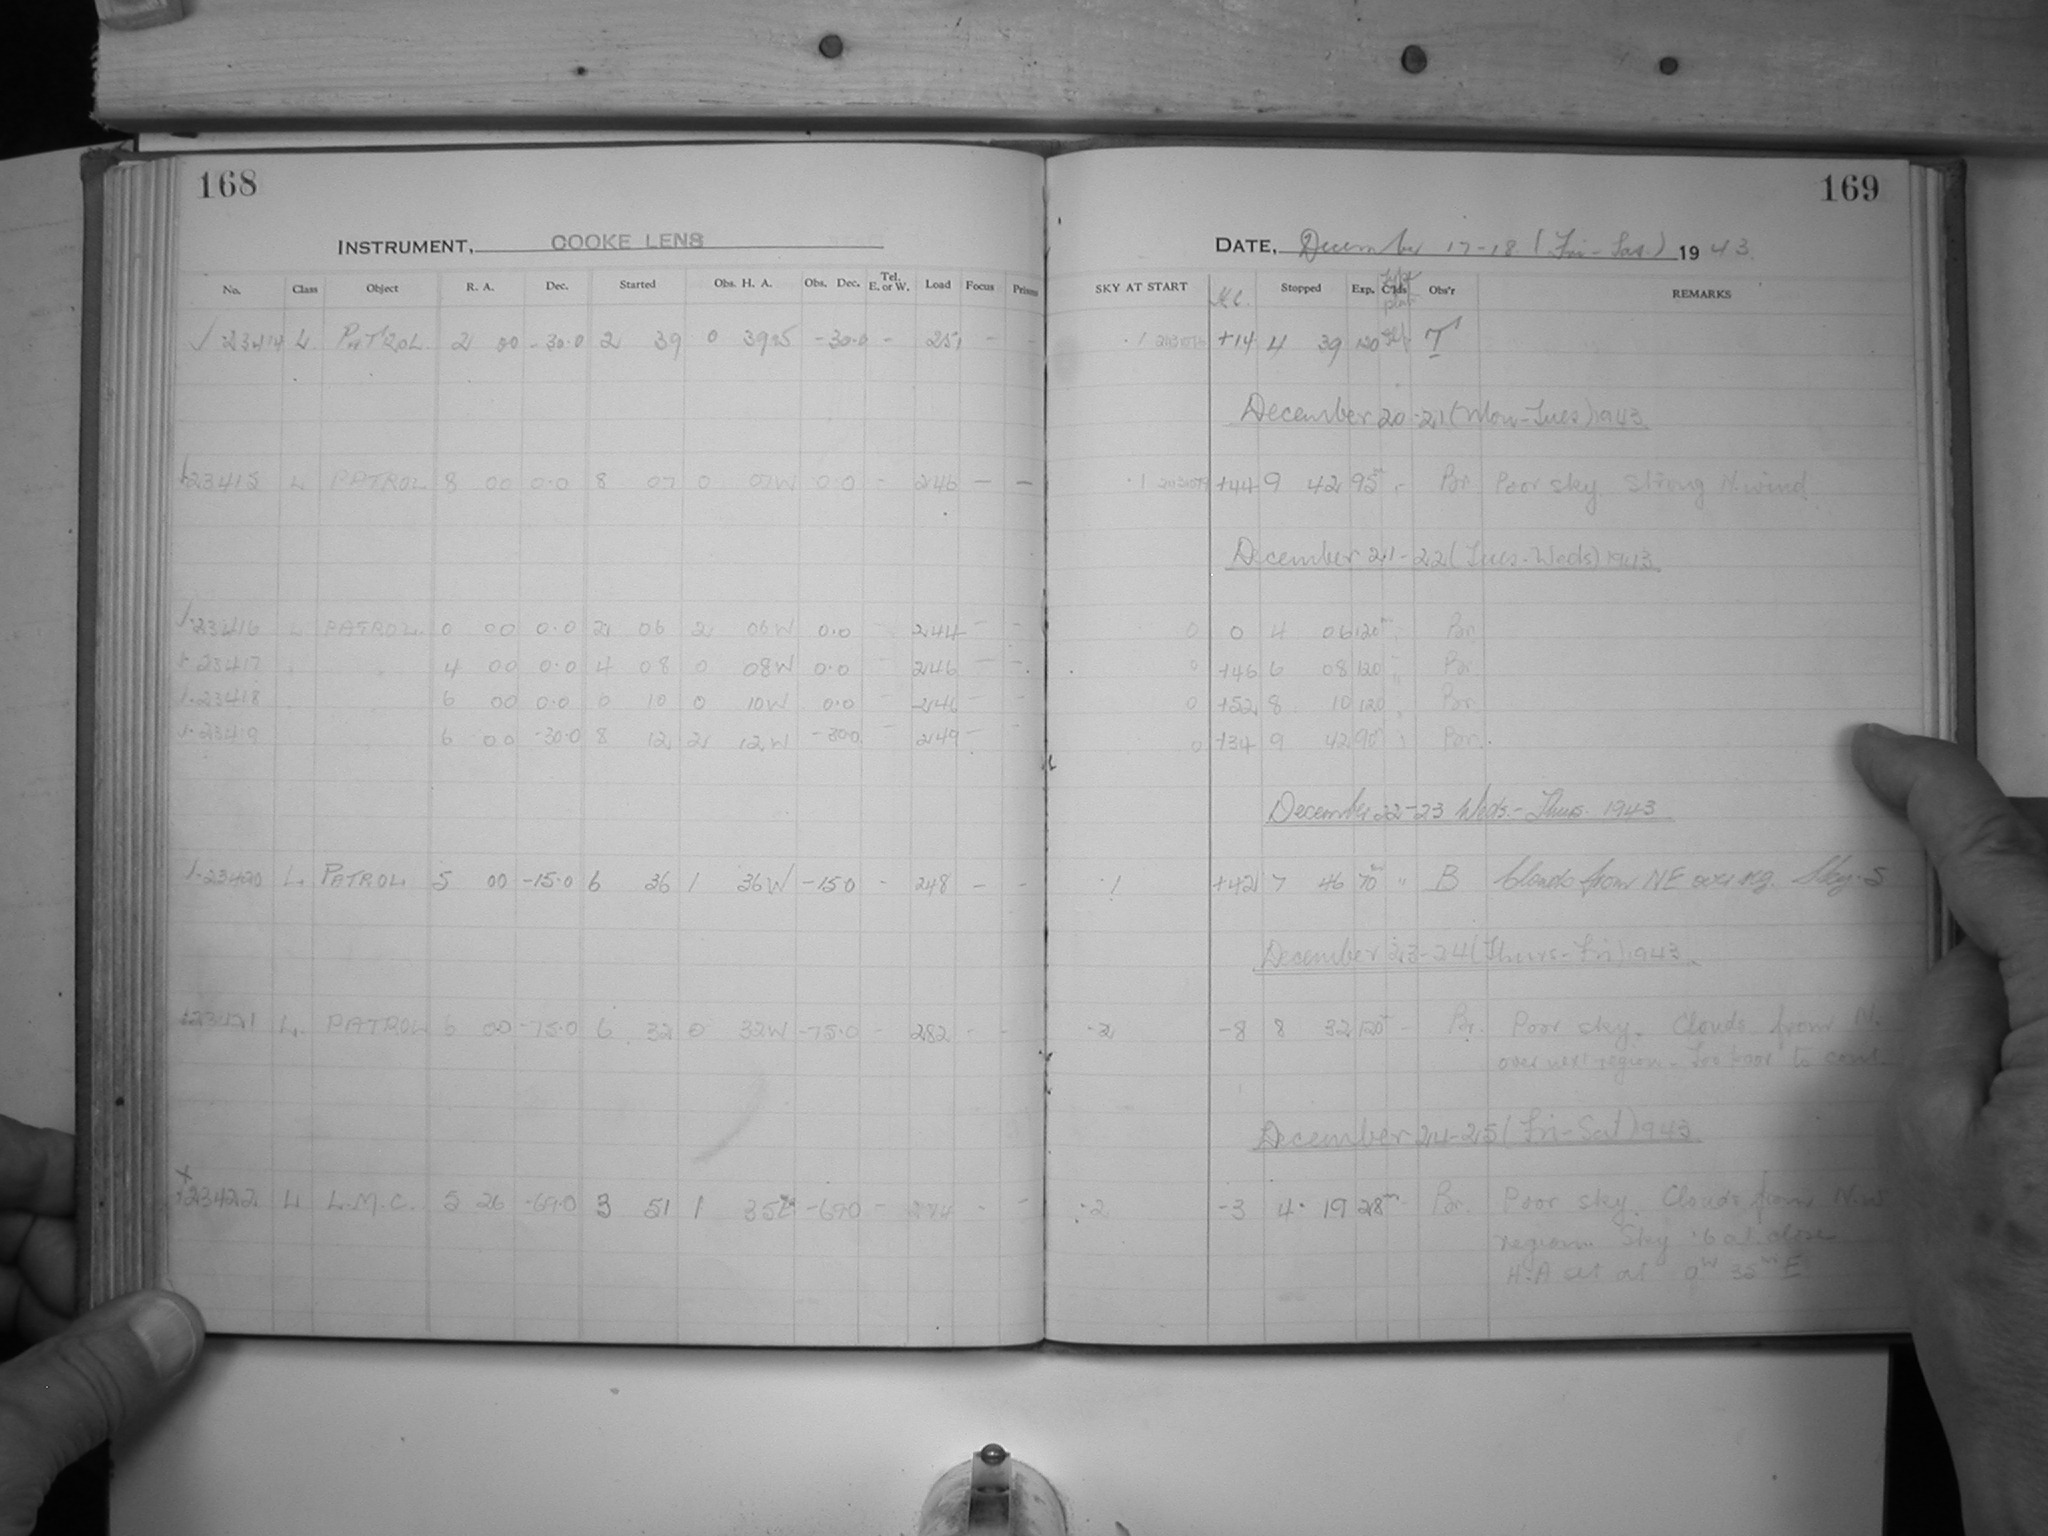 168
INSTRUMENT, COOKE LENS
No. Class Object R. A. Dec. Started Obs. H. A. Obs. Dec. Tel. E. or W. Load Focus Prism
23414 L PATROL 2 00 -30.0 2 39 0 39 -30.0 - 251 - -
23415 L PATROL 8 00 0.0 8 07 0 07W 0.0 - 246 - -
23416 L PATROL 0 00 0.0 2 06 2 06W 0.0 - 244 - -
23417 4 00 0.0 4 08 0 08W 0.0 - 246 - -
23418 6 00 0.0 6 10 0 10W 0.0 - 246 - -
23419 6 00 -30.0 8 12 2 12W -30.0 - 249 - -
23420 L. PATROL 5 00 -15.0 6 36 1 36W -15.0 - 248 - -
23421 L. PATROL 6 00 -75.0 6 32 0 32W -75.0 - 282 - -
23422 L L.M.C. 5 26 -69.0 3 51 1 35E -69.0 - 274 - -
169
DATE, December 17-18 (Fri-Sat.) 1943
SKY AT START Stopped Exp. Cl'ds Obs'r REMARKS
.1 +14 4 39 120 T
December 20-21 (Mon-Tues) 1943
.1 +44 9 42 95m Br Poor sky strong N. wind
December 21-22 (Tues-Weds) 1943
0 0 4 06 120m Br.
0 +46 6 08 120 Br.
0 +52 8 10 120 Br.
0 +34 9 42 90 Br.
December 22-23 Weds.-Thurs. 1943
.1 +42 7 46 70m " B Clouds from NE over reg. Sky .5
December 23-24 (Thurs-Fri) 1943
.2 -8 8 32 120m - Br. Poor sky. Clouds from N.
over next region - Too poor to cont.
December 24-25 (Fri-Sat) 1943
.2 -3 4 19 28m - Br. Poor sky. Clouds from N.W
region. Sky .6 at close
H.A set at 0h 35m E